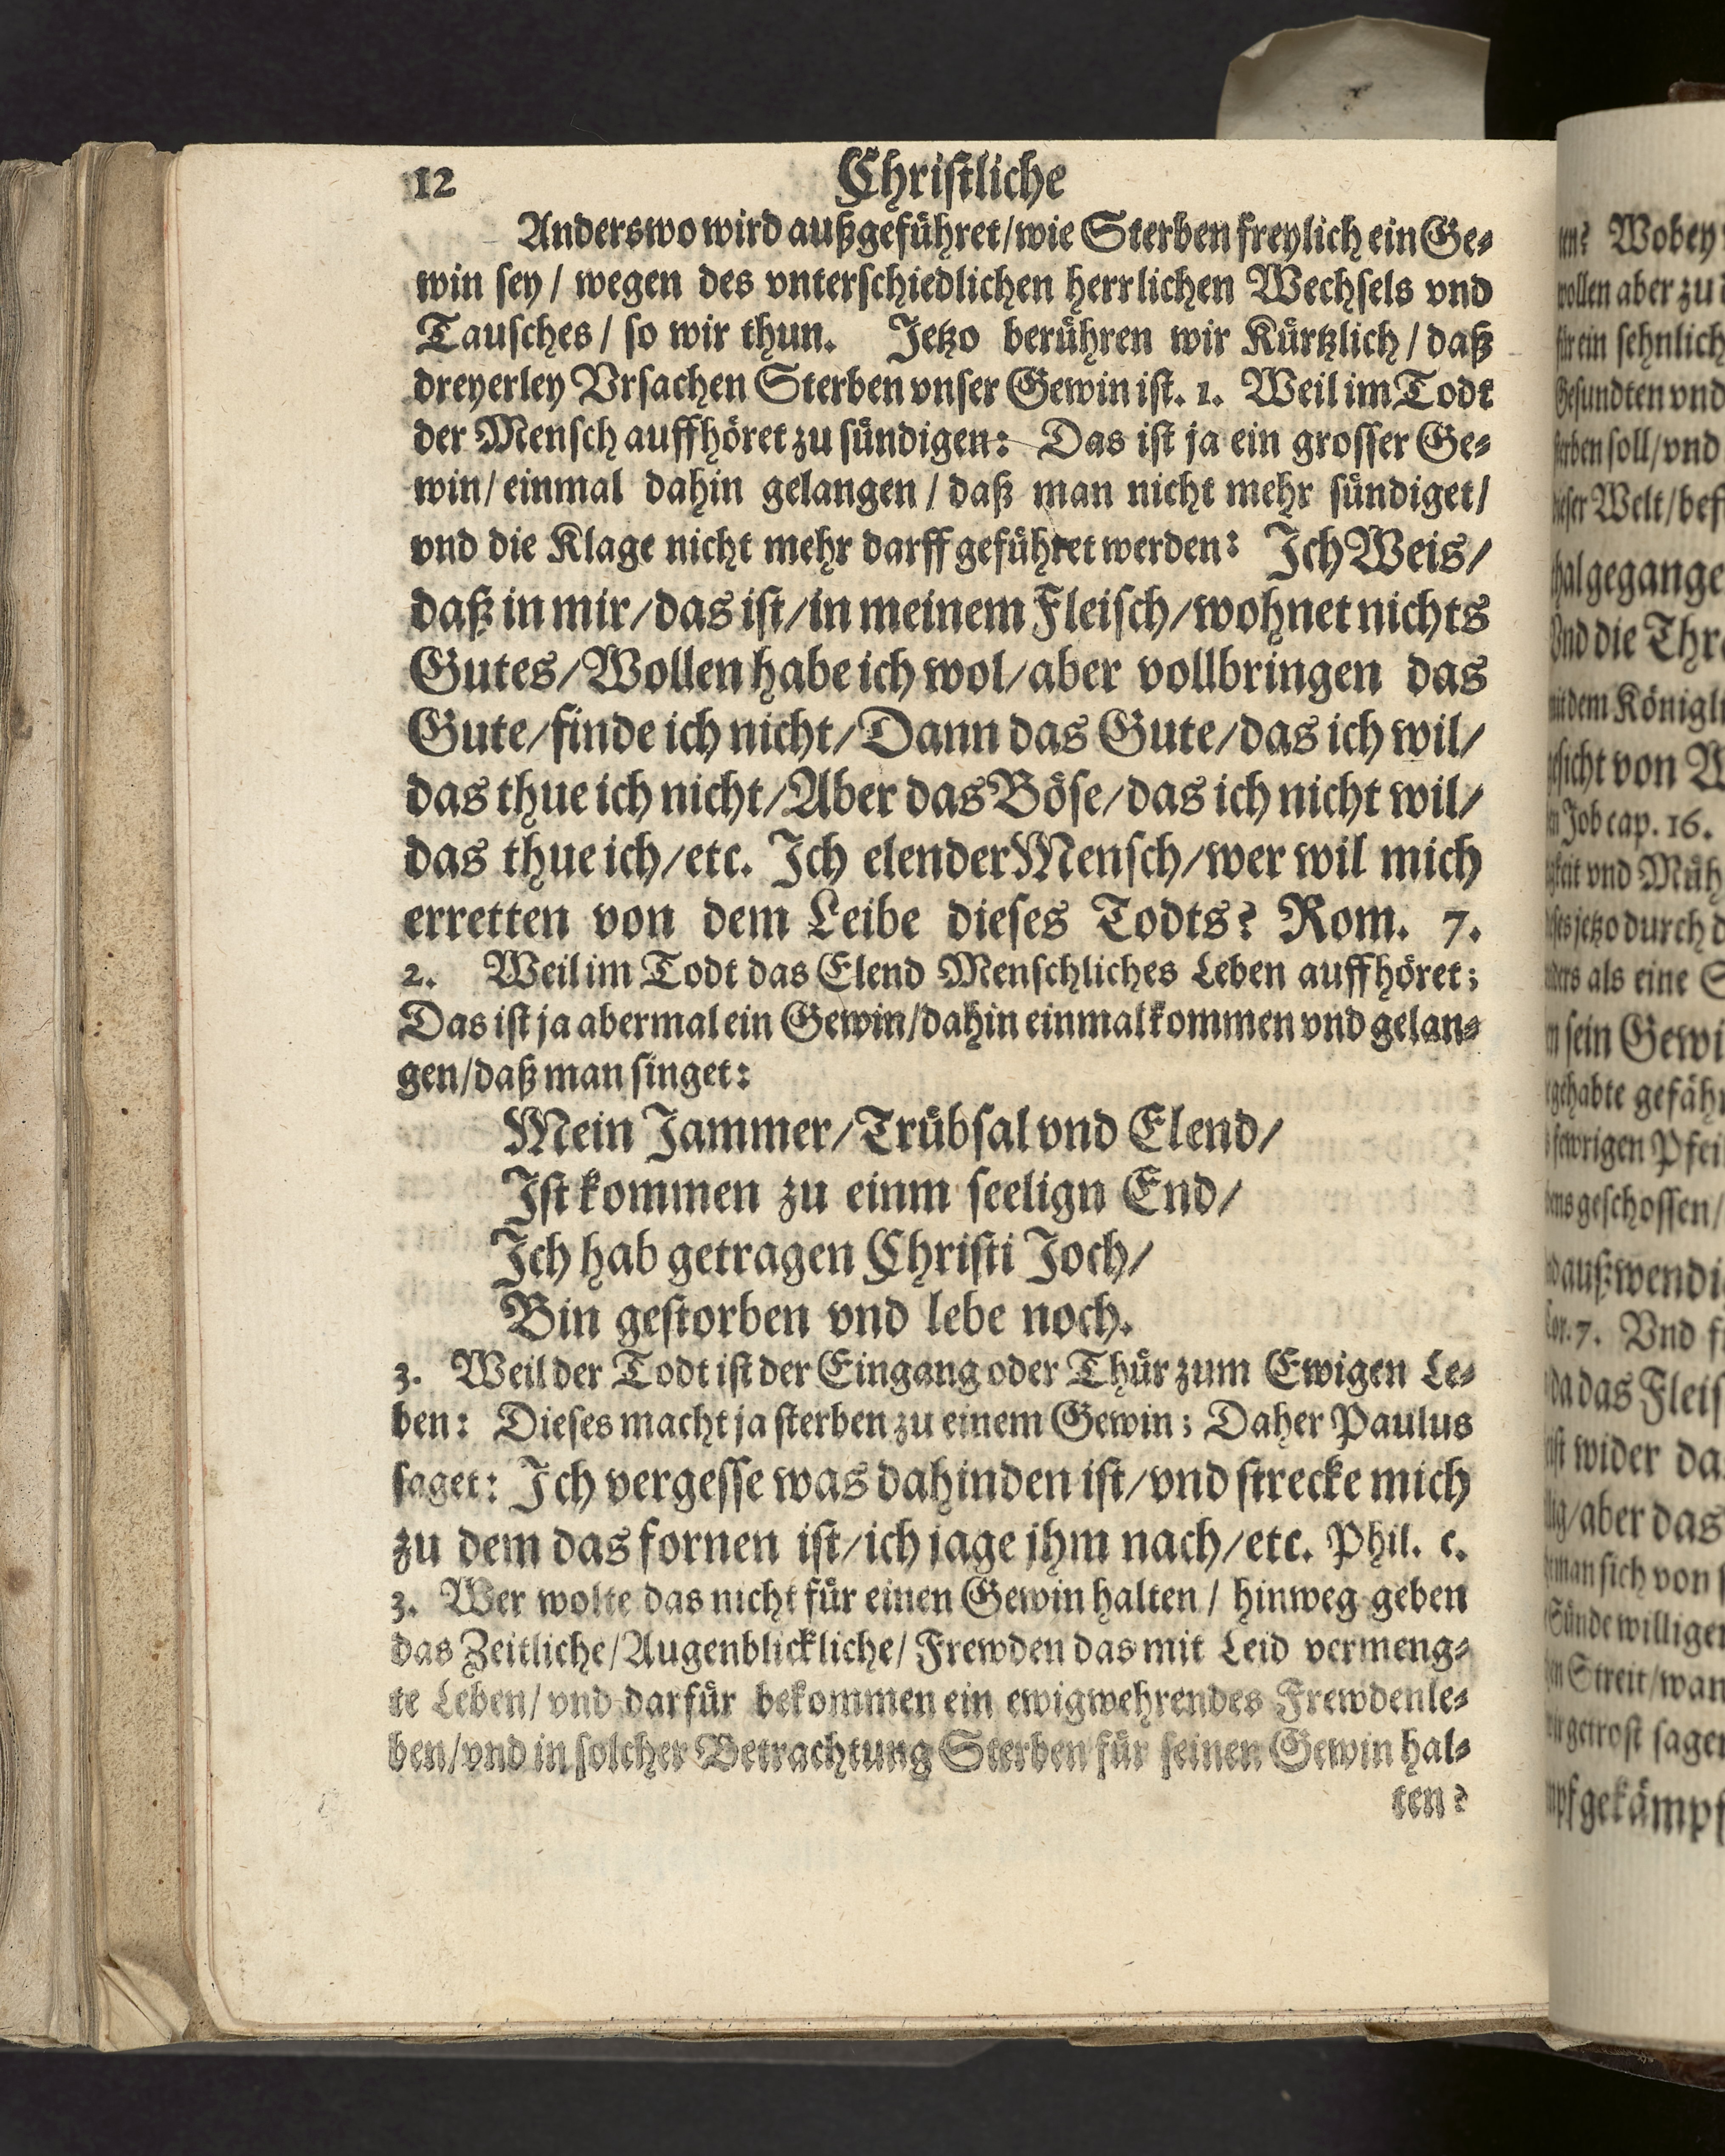 12 Christliche
Anderswo wird außgeführet/wie Sterben freylich ein Ge-
win sey/ wegen des vnterschiedlichen herrlichen Wechsels vnd
Tausches/ so wir thun. Jetzo berühren wir Kürtzlich/ daß
dreyerley Vrsachen Sterben vnser Gewin ist. 1. Weil im Todt
der Mensch auffhöret zu sündigen: Das ist ja ein grosser Ge-
win/ einmal dahin gelangen/ daß man nicht mehr sündiget/
vnd die Klage nicht mehr darff geführet werden: Ich Weis/
daß in mir/das ist/in meinem Fleisch/wohnet nichts
Gutes/Wollen habe ich wol/aber vollbringen das
Gute/finde ich nicht/Dann das Gute/das ich wil/
das thue ich nicht/Aber das Böse/das ich nicht wil/
das thue ich/etc. Ich elender Mensch/wer wil mich
erretten von dem Leibe dieses Todts? Rom. 7.
2. Weil im Todt das Elend Menschliches Leben auffhöret;
Das ist ja abermal ein Gewin/dahin einmal kommen vnd gelan-
gen/daß man singet:
Mein Jammer/Trübsal vnd Elend/
Ist kommen zu einm seelign End/
Ich hab getragen Christi Joch/
Bin gestorben vnd lebe noch.
3. Weil der Todt ist der Eingang oder Thür zum Ewigen Le-
ben: Dieses macht ja sterben zu einem Gewin; Daher Paulus
saget: Ich vergesse was dahinden ist/vnd strecke mich
zu dem das fornen ist/ich jage jhm nach/etc. Phil. c.
3. Wer wolte das nicht für einen Gewin halten/ hinweg geben
das Zeitliche/Augenblickliche/ Frewden das mit Leid vermeng-
te Leben/ vnd darfür bekommen ein ewigwehrendes Frewdenle-
ben/vnd in solcher Betrachtung Sterben für seinen Gewin hal-
ten?
Wobey
aber zu
ein sehnlich
Gesundten vnd
soll/vnd
Welt/
gegange
Vnd die
dem
von
Job cap. 16.
vnd
jetzo durch
als eine
sein
gehabte
Pfei
geschossen/
7. Vnd
da das
wider
aber das
man sich von
Sünde
Streit/
getrost